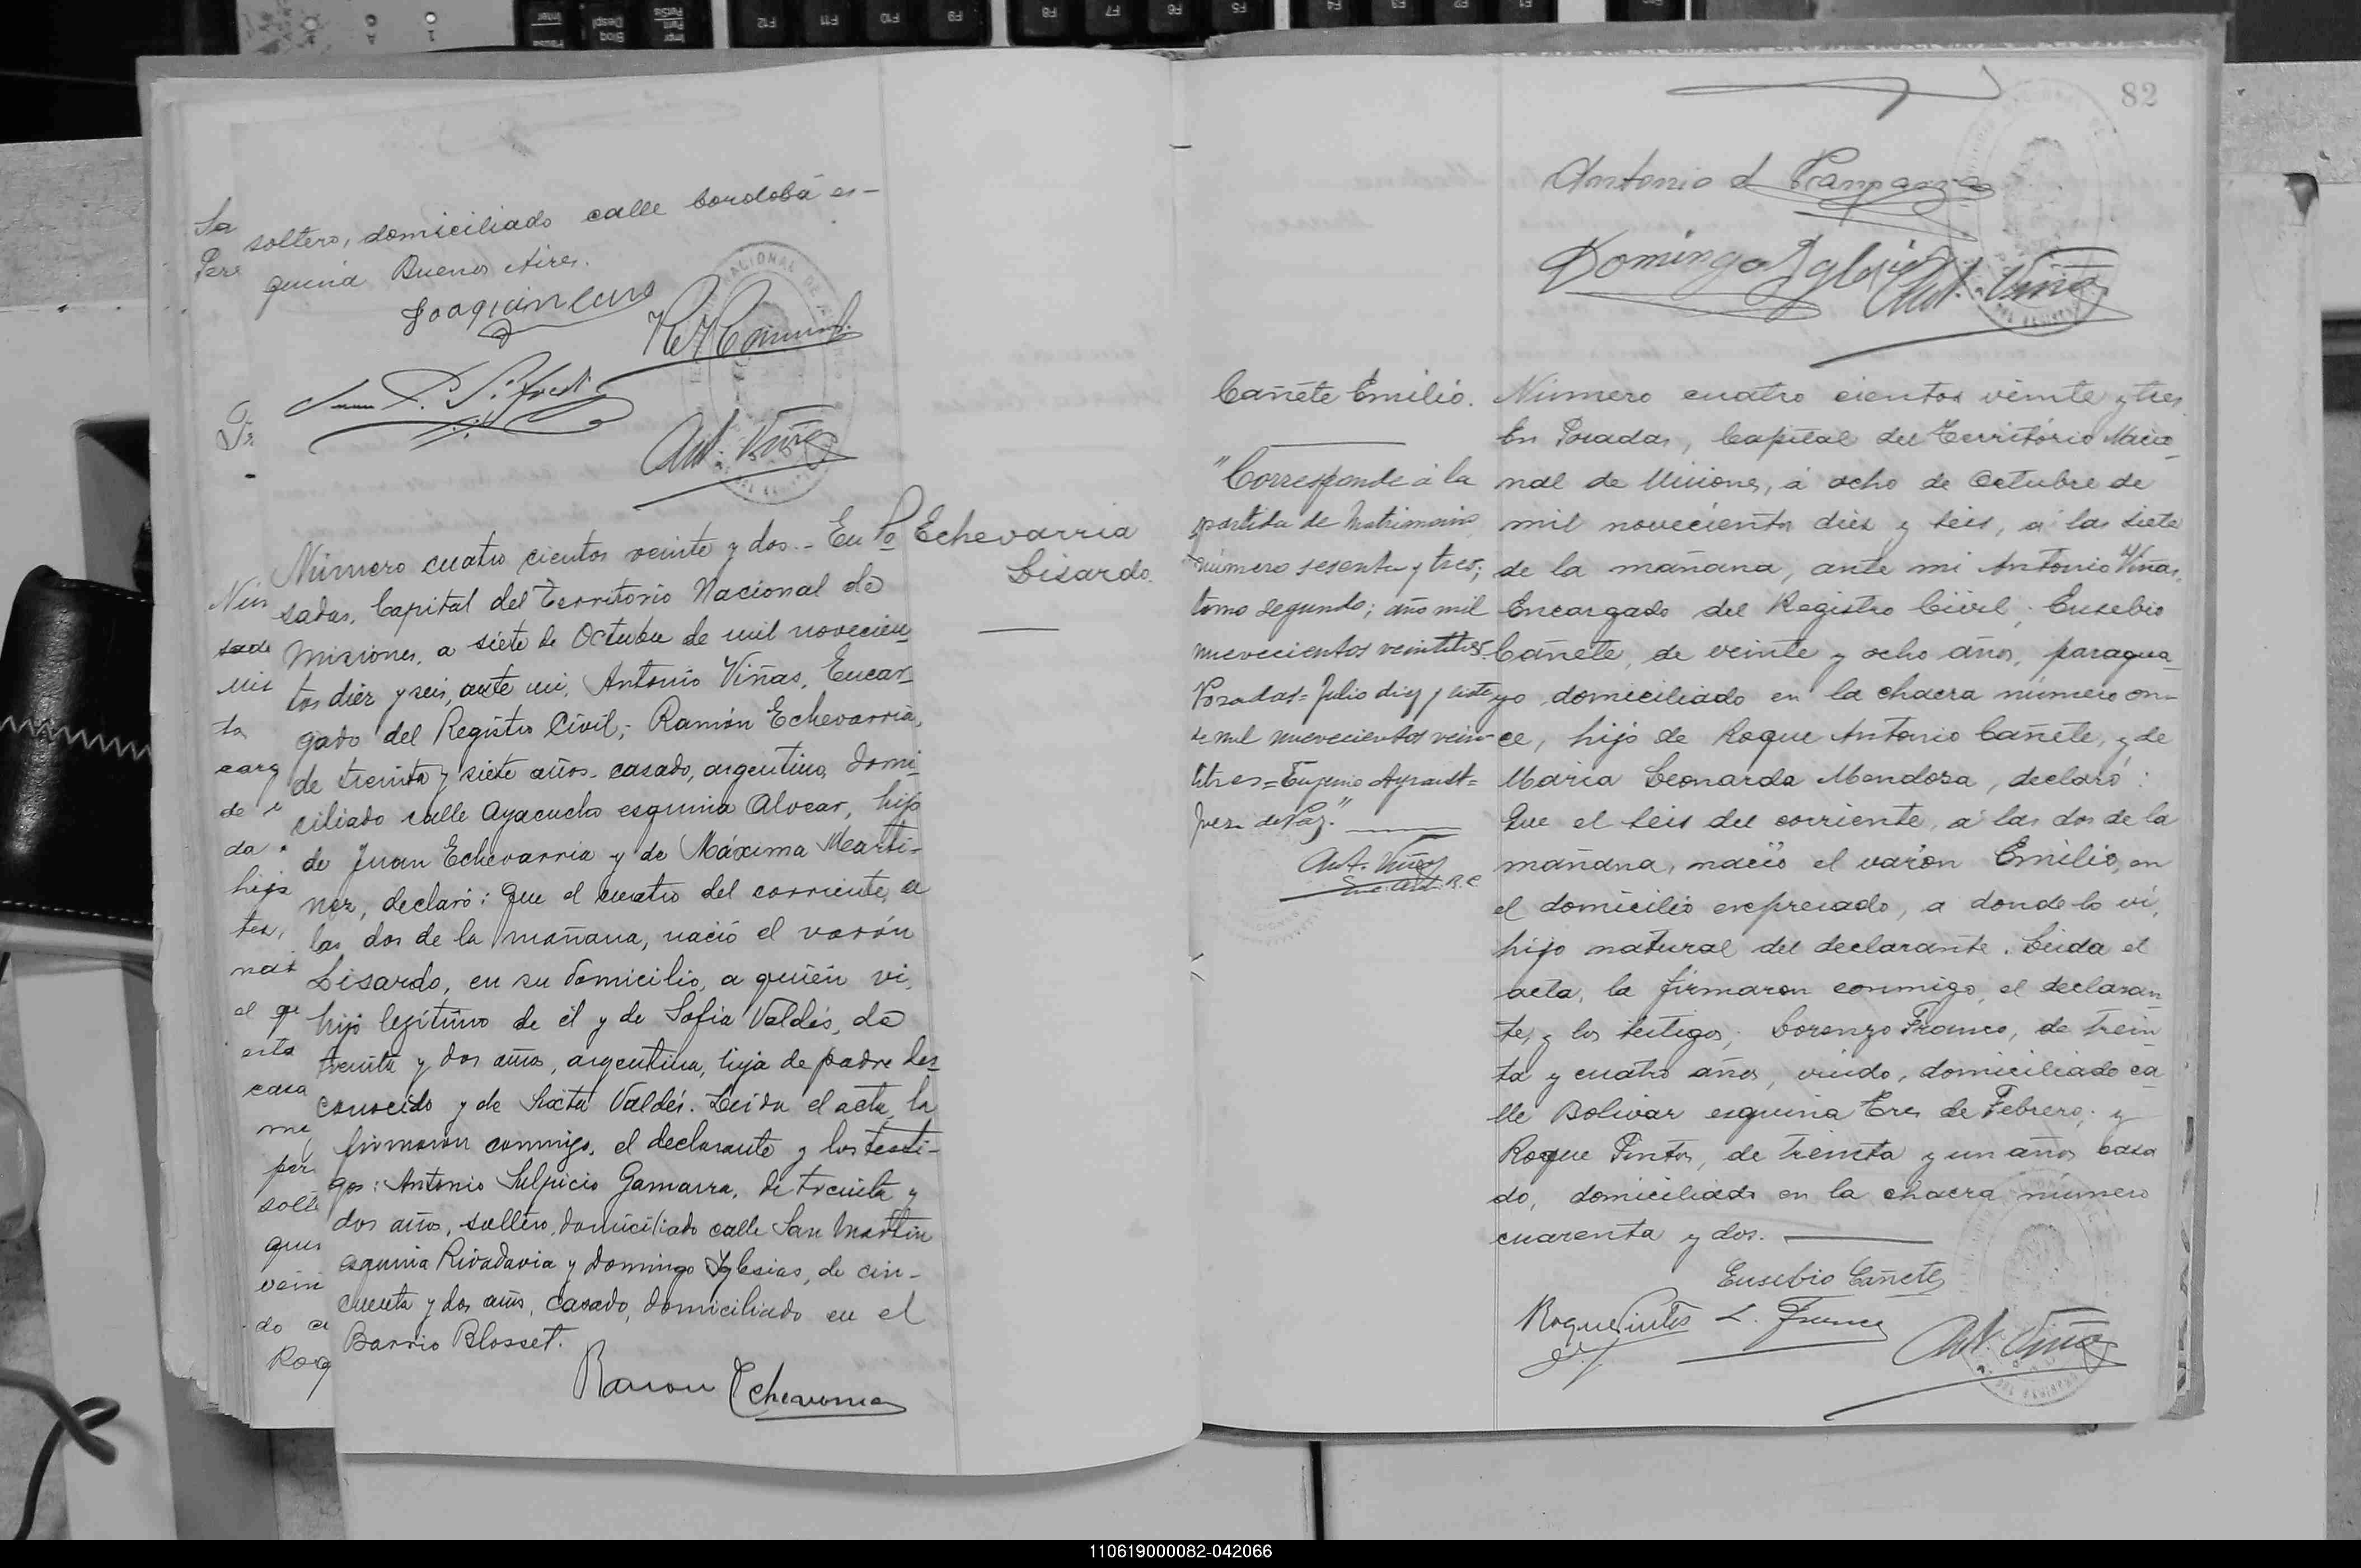 soltero, domiciliado calle Cordobá es-
quina Buenos Aires.
Ant. Viñas
Número cuatro cientos veinte y dos.- En Po
sadas, Capital del Territorio Nacional de
Misiones, a siete de Octubre de mil novecien
tos diez y seis, ante mi, Antonio Viñas, Encar-
gado del Registro Civil; Ramón Echevarria,
de treinta y siete años, casado, argentino, domi-
ciliado calle Ayacucho esquina Alvear, hijo
de Juan Echevarria y de Máxima Marti-
nez, declaró: Que el cuatro del corriente, a
las dos de la mañana, nació el varón
Lisardo, en su domicilio, a quién vi,
hijo legítimo de él y de Sofia Valdés, de
treinta y dos años, argentina, hija de padre des-
conocido y de Sixta Valdés. Leida el acta, la
firmaron conmigo, el declarante y los testi-
gos: Antonio Sulpicio Gamarra, de treinta y
dos años, soltero, domiciliado calle San Martin
esquina Rivadavia y Domingo Yglesias, de cin-
cuenta y dos años, casado, domiciliado en el
Barrio Blosset.
Ramon Echevarria
Echevarria
Lisardo.
82
Domingo Yglesias
Ant. Viñas
Cañete Emilio.
"Corresponde á la
partida de matrimonio
número sesenta y tres;
tomo segundo; año mil
nuevecientos veintitres.
Posadas= Julio diez y siete
de mil nuevecientos vein-
titres= Eugenio
Juez de Paz."
Ant. Viñas
Número cuatro cientos veinte y tres
En Posadas, Capital del Território Nacio-
nal de Misiones, á ocho de Octubre de
mil novecientos diez y seis, a las siete
de la mañana, ante mi Antonio Viñas,
Encargado del Registro Civil; Eusebio
Cañete, de veinte y ocho años, paragua-
yo domiciliado en la chacra número on-
ce, hijo de Roque Antonio Cañete, y de
Maria Leonarda Mendoza, declaró:
Que el seis del corriente, á las dos de la
mañana, nació el varón Emilio, en
el domicilio expresado, a donde lo vi,
hijo natural del declarante. Leida el
acta, la firmaron conmigo, el declaran-
te, y los testigos; Lorenzo Franco, de trein
ta y cuatro años, viudo, domiciliado ca-
lle Bolivar esquina Tres de Febrero; y
Roque Pintos, de treinta y un años casa
do, domiciliado en la chacra número
cuarenta y dos.
Eusebio Cañete
Roque Pintos L. Franco
Ant. Viñas
110619000082-042066